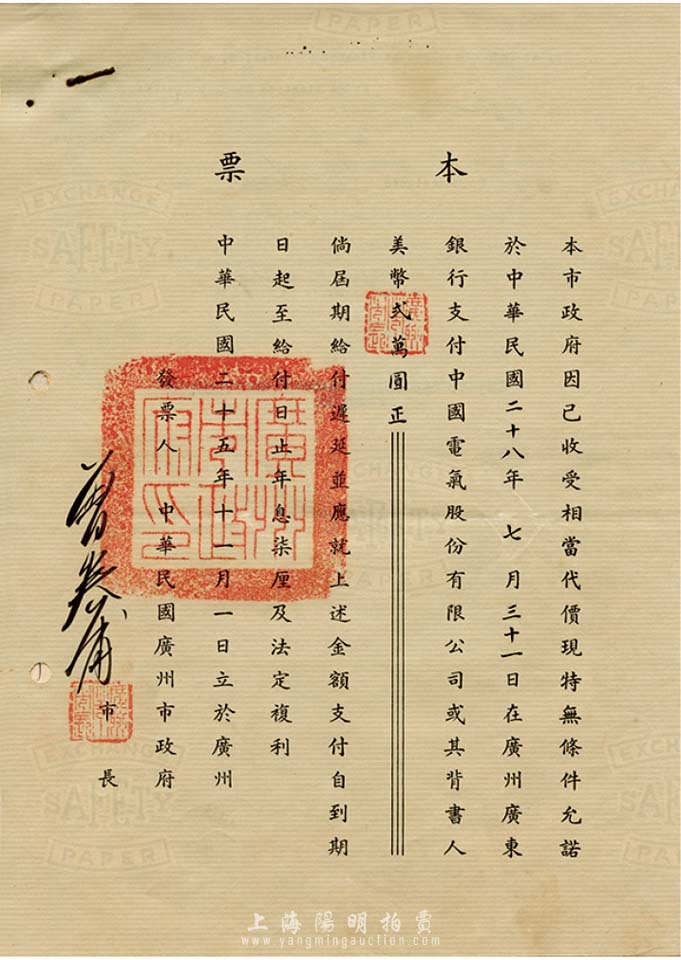 本票
本市政府因已收受相當代價現特無條件允諾
於中華民國二十八年 七月三十一日在廣州廣東
銀行支付中國電氣股份有限公司或其背書人
美幣弍萬圓正
倘屆期給付遲延並應就上述金額支付自到期
日起至給付日止年息柒厘及法定複利
中華民國二十五年十一月一日立於廣州
發票人 中華民國廣州市政府
市長
曾養甫
廣州市政府印
EXCHANGE
SAFETY
PAPER
上海陽明拍賣
www.yangmingauction.com